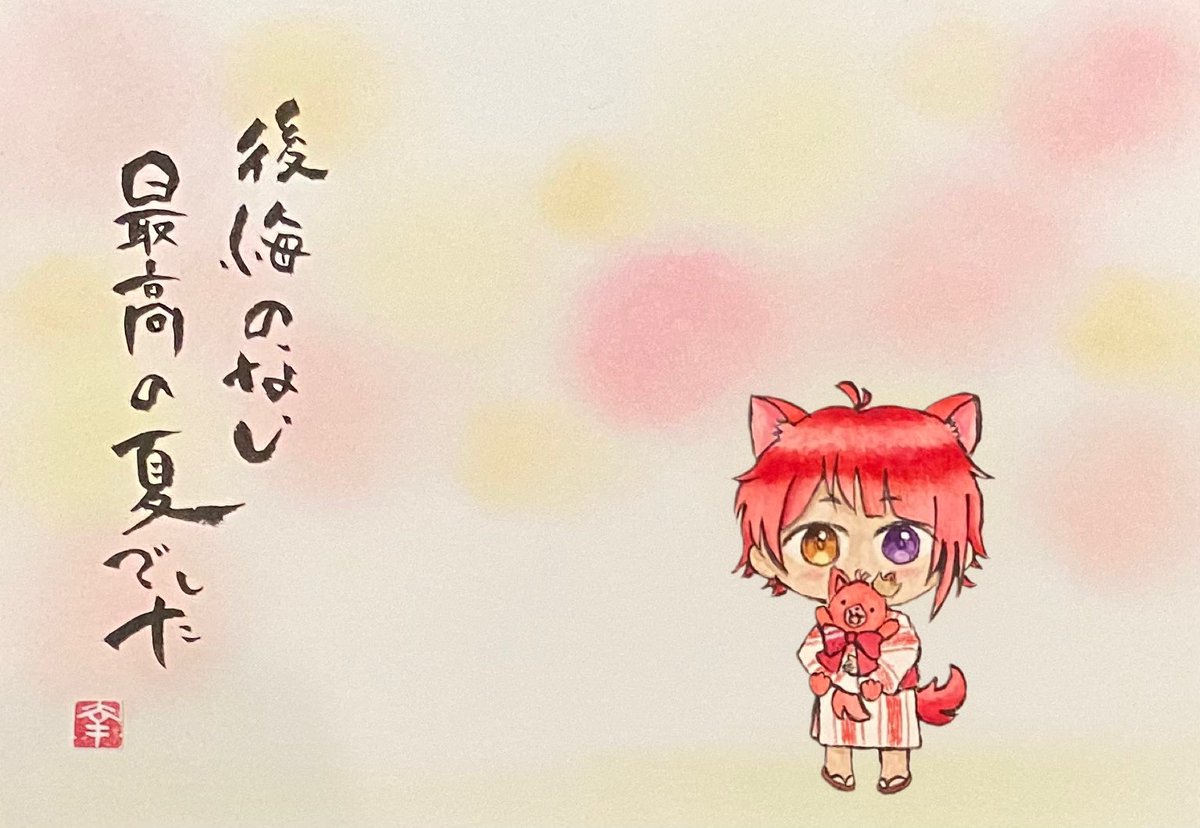 後悔のない
最高の夏でした
幸